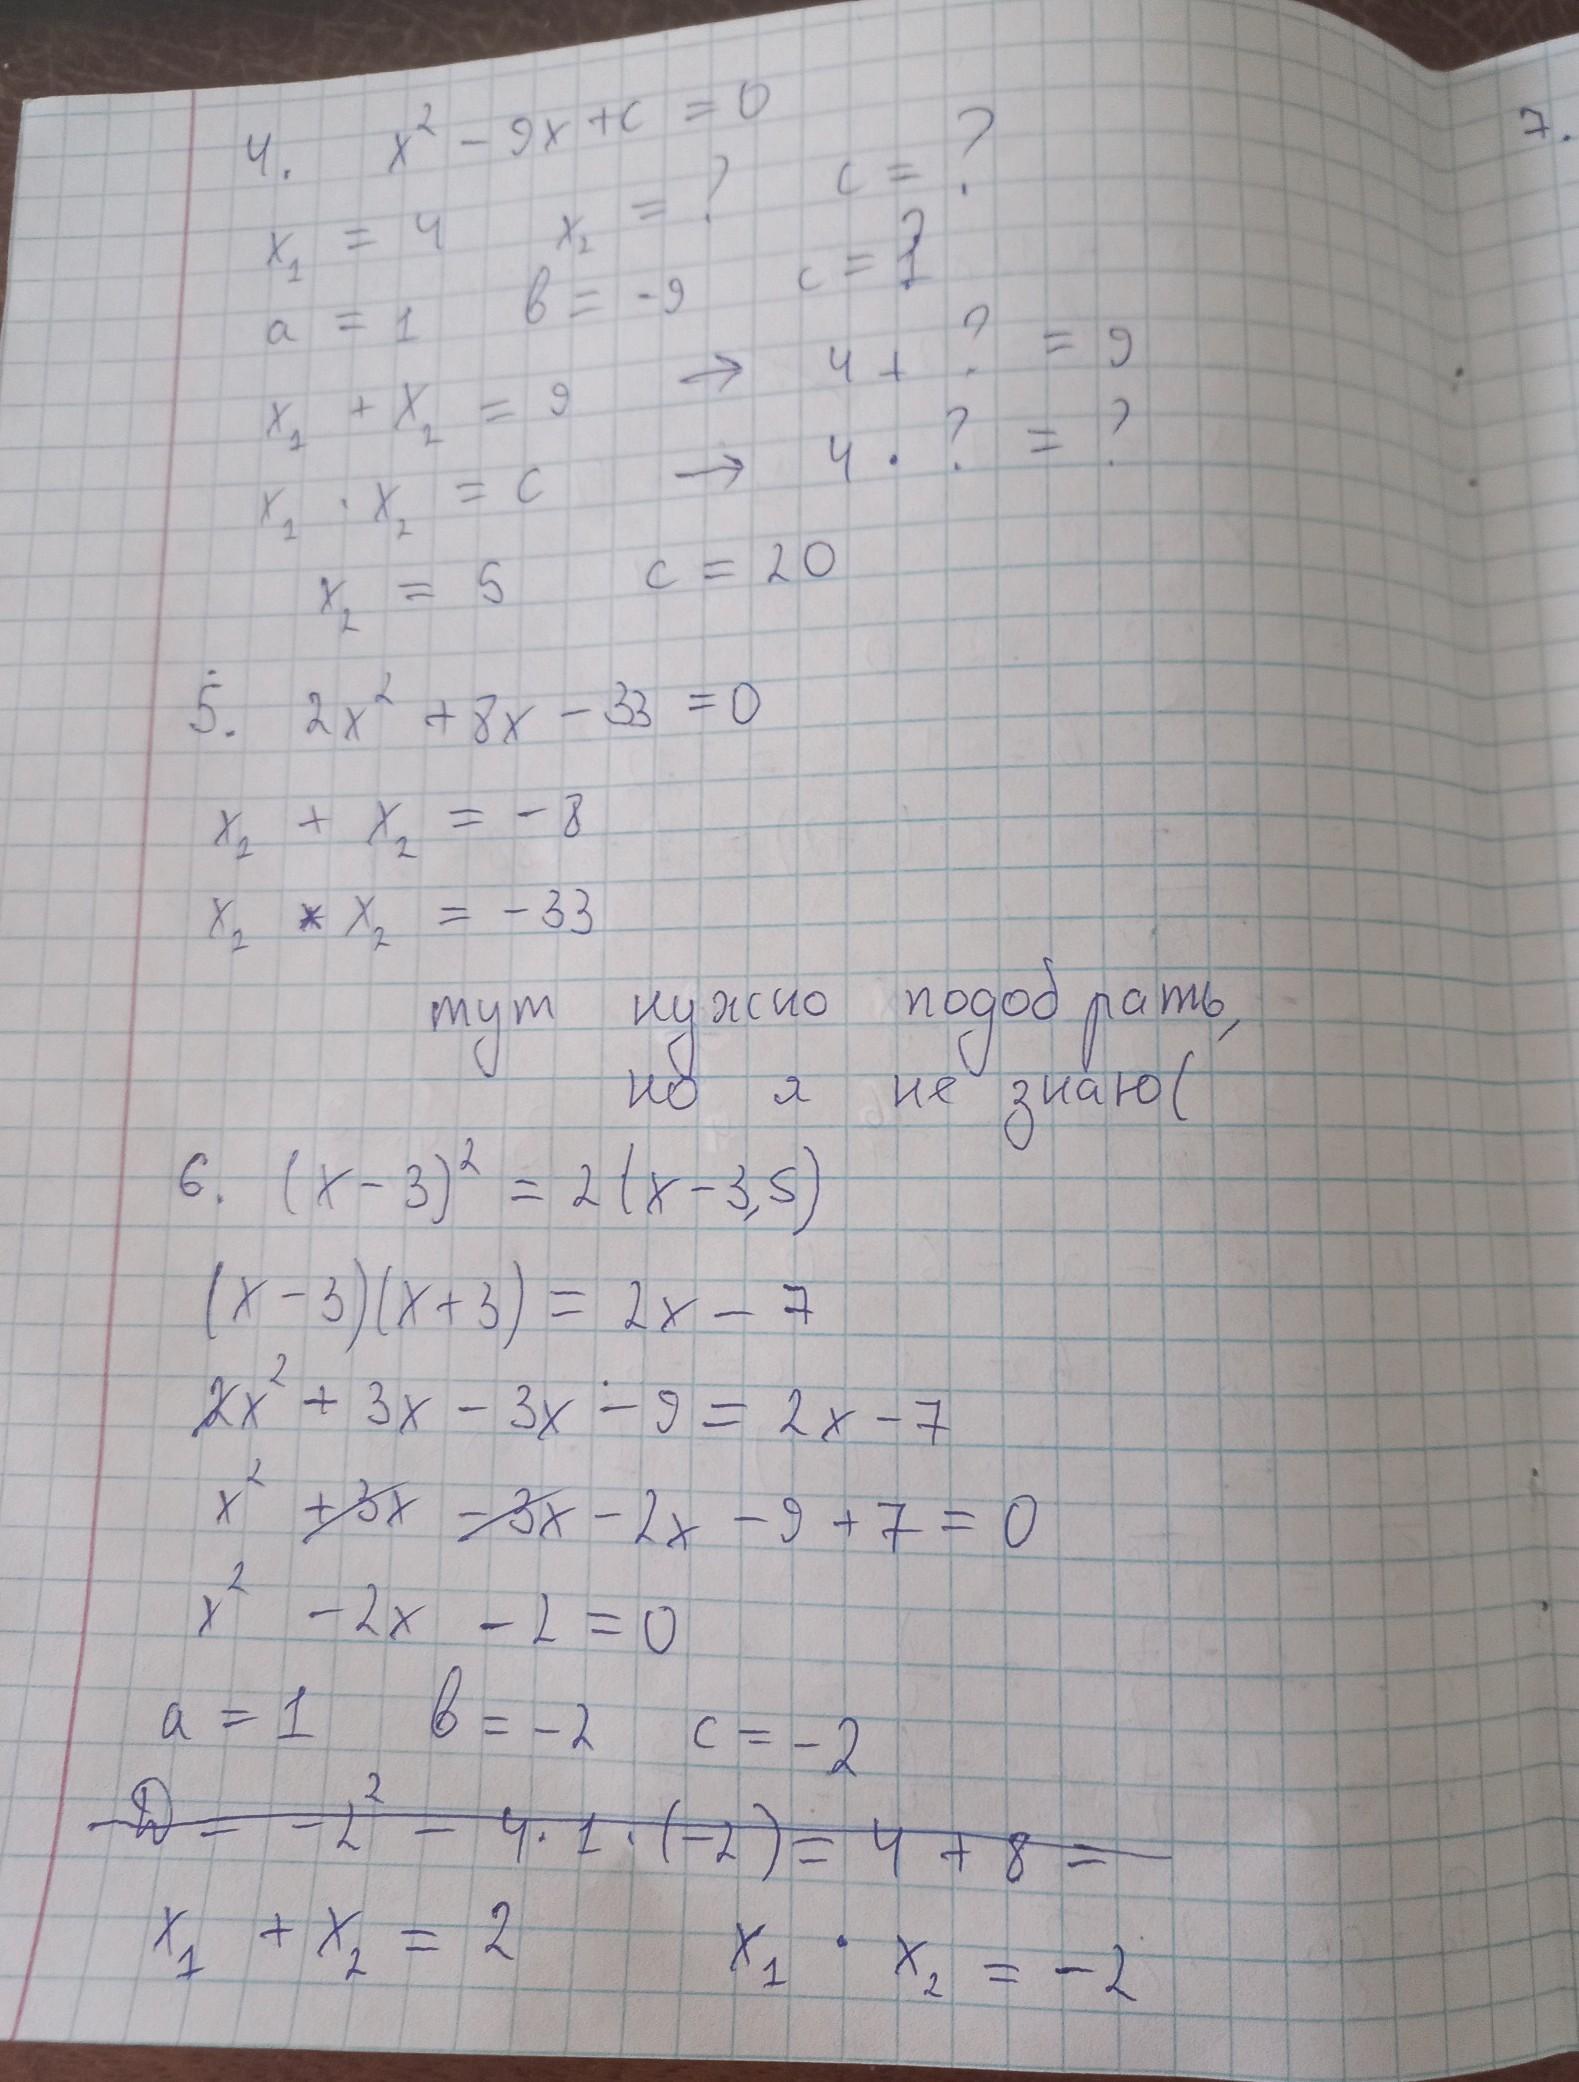 4. x² - 9x + c = 0
x₁ = 4 x₂ = ? c = ?
a = 1 в = -9 c = ?
x₁ + x₂ = 9 → 4 + ? = 9
x₁ · x₂ = c → 4 · ? = ?
x₂ = 5 c = 20
5. 2x² + 8x - 33 = 0
x₂ + x₂ = -8
x₂ * x₂ = -33
тут нужно подобрать,
но я не знаю(
6. (x - 3)² = 2(x - 3,5)
(x - 3)(x + 3) = 2x - 7
x² + 3x - 3x - 9 = 2x - 7
x² + 3x - 3x - 2x - 9 + 7 = 0
x² - 2x - 2 = 0
a = 1 в = -2 c = -2
D = -2² - 4 · 1 · (-2) = 4 + 8 =
x₁ + x₂ = 2 x₁ · x₂ = -2
7.